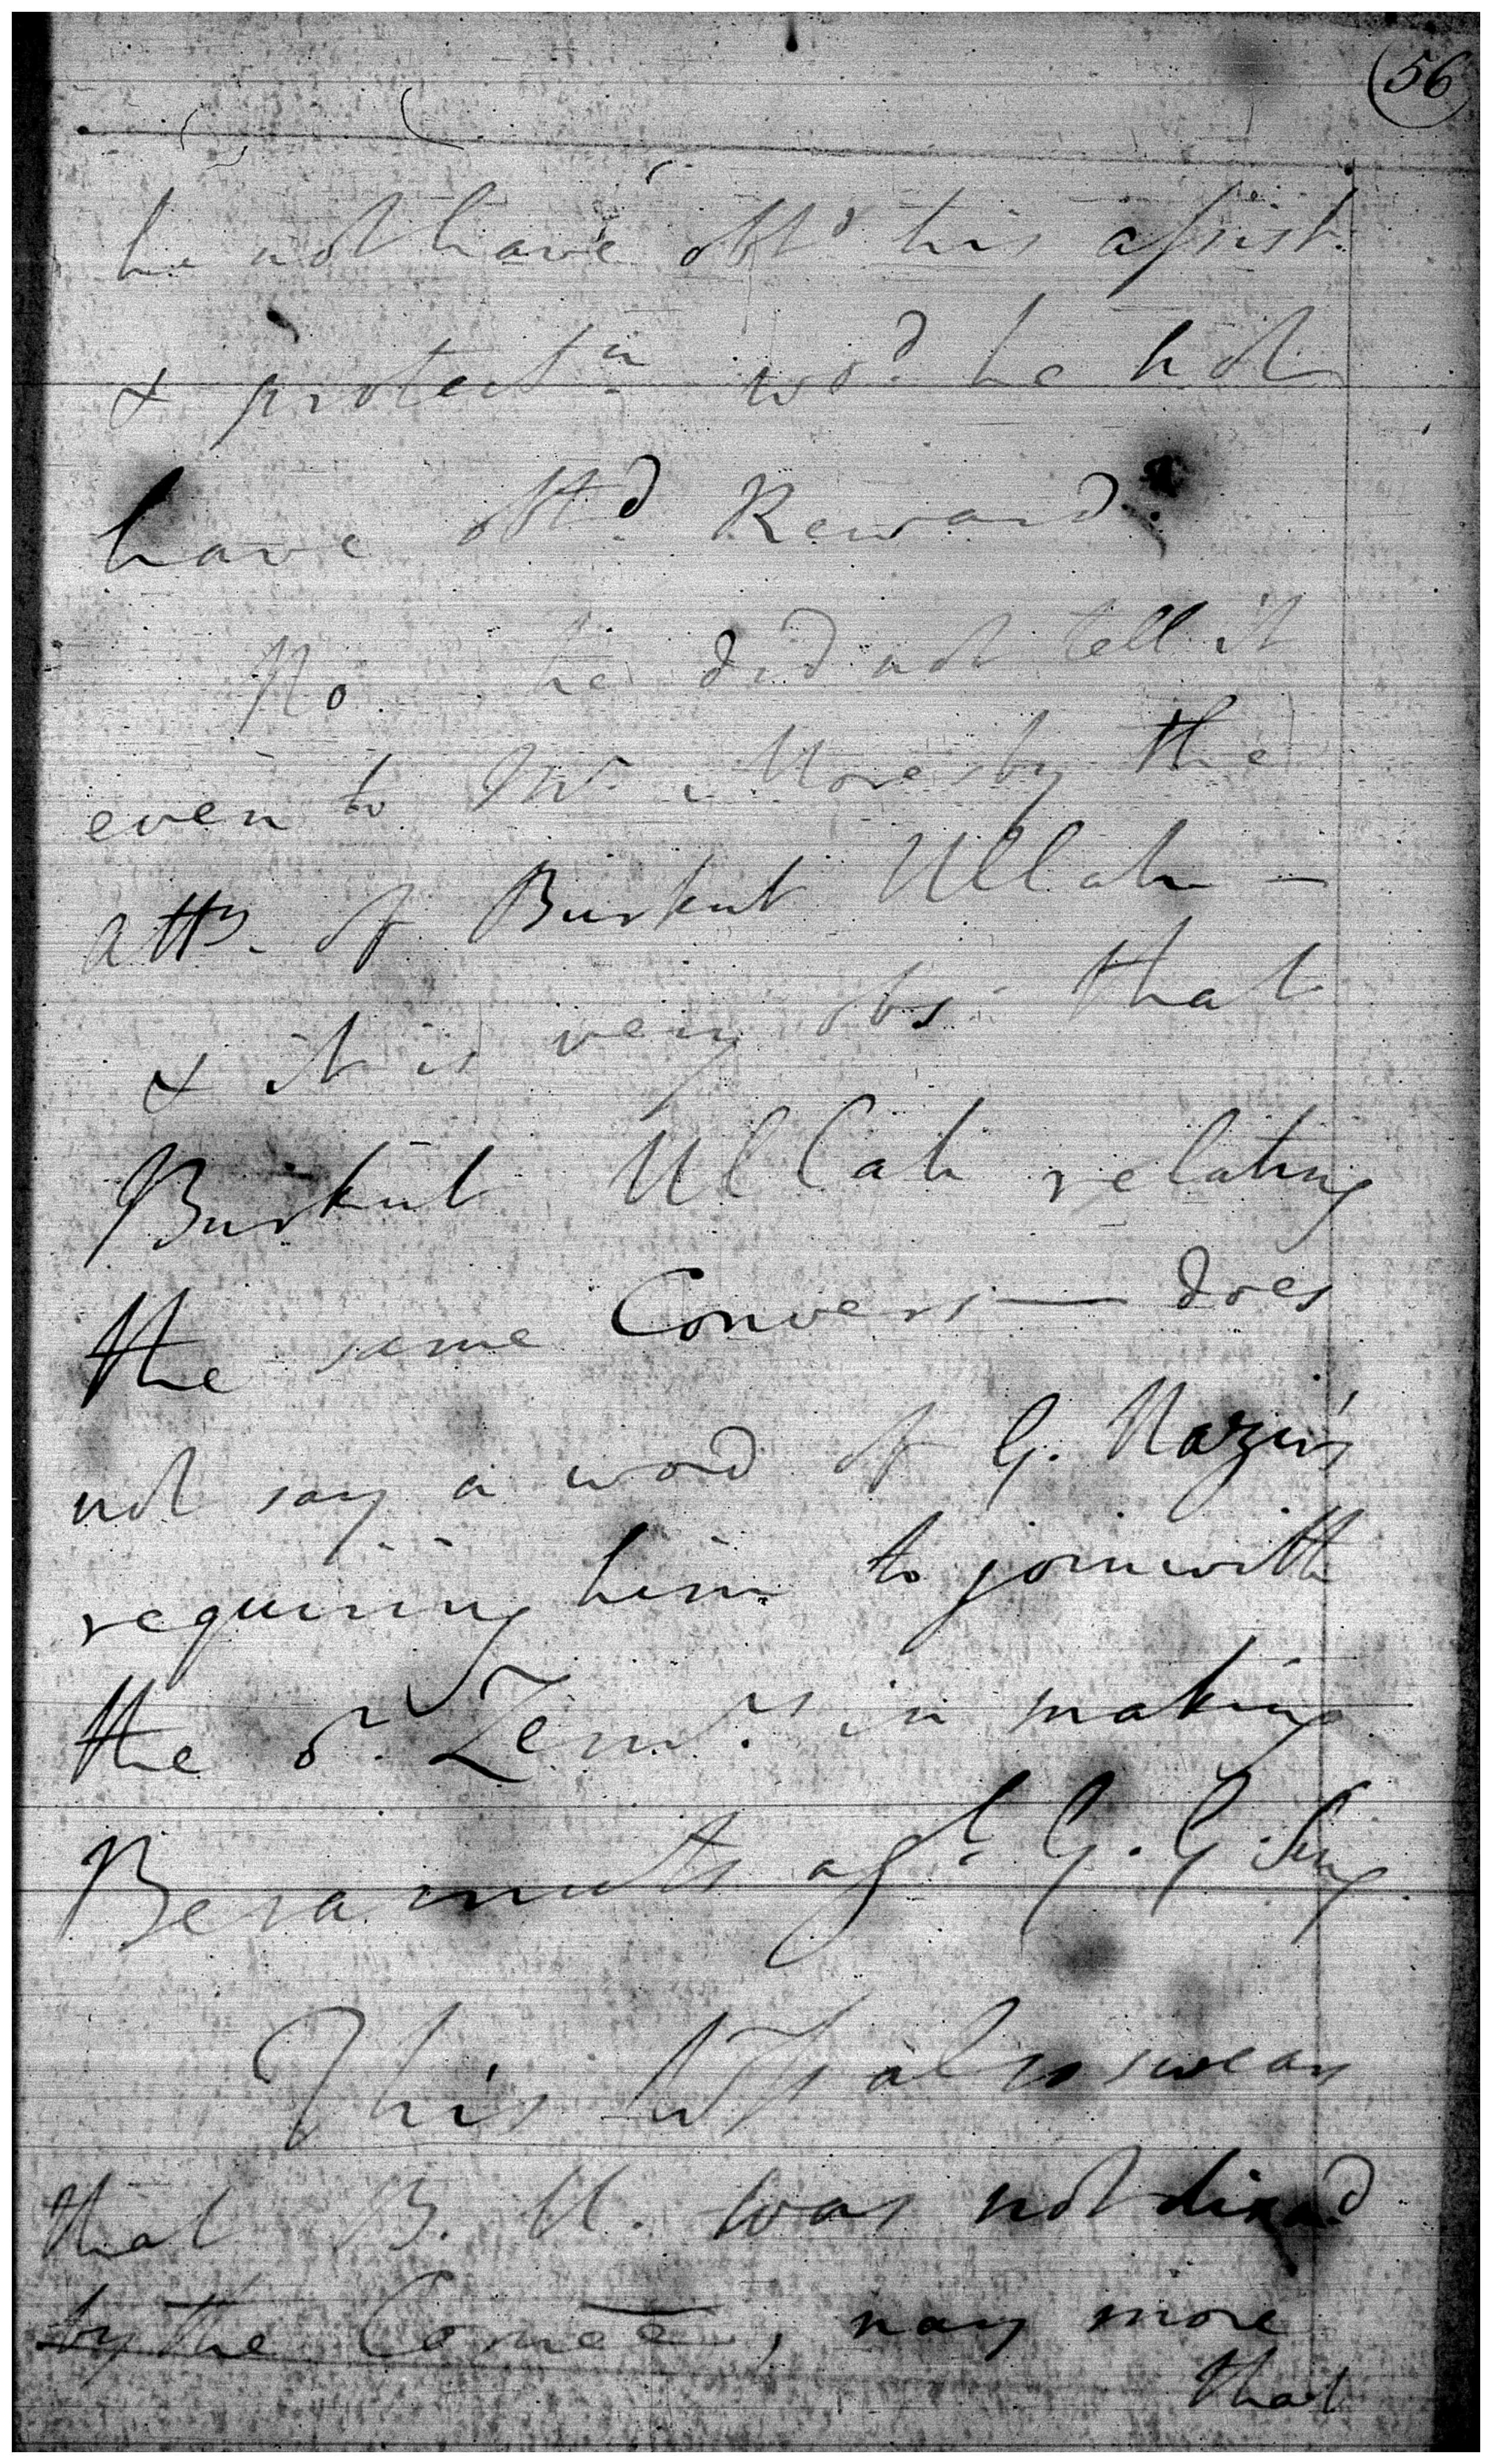 (56)
he not have offd his assist.
& protectn. wod. he not
have offd. Reward?
No. he did not tell it
even to Mr. Moresby the
atty. of Burkut Ullah —
& it is very obs. that
Burkut Ullah relating
the same Convers— does
not say a word of G. Nazir's
requiring him to join with
the or. Zemrs. in making
Beramutts agt. G. G. Sing
This W. also swears
that B. U. was not
by the Comee, nay more
that